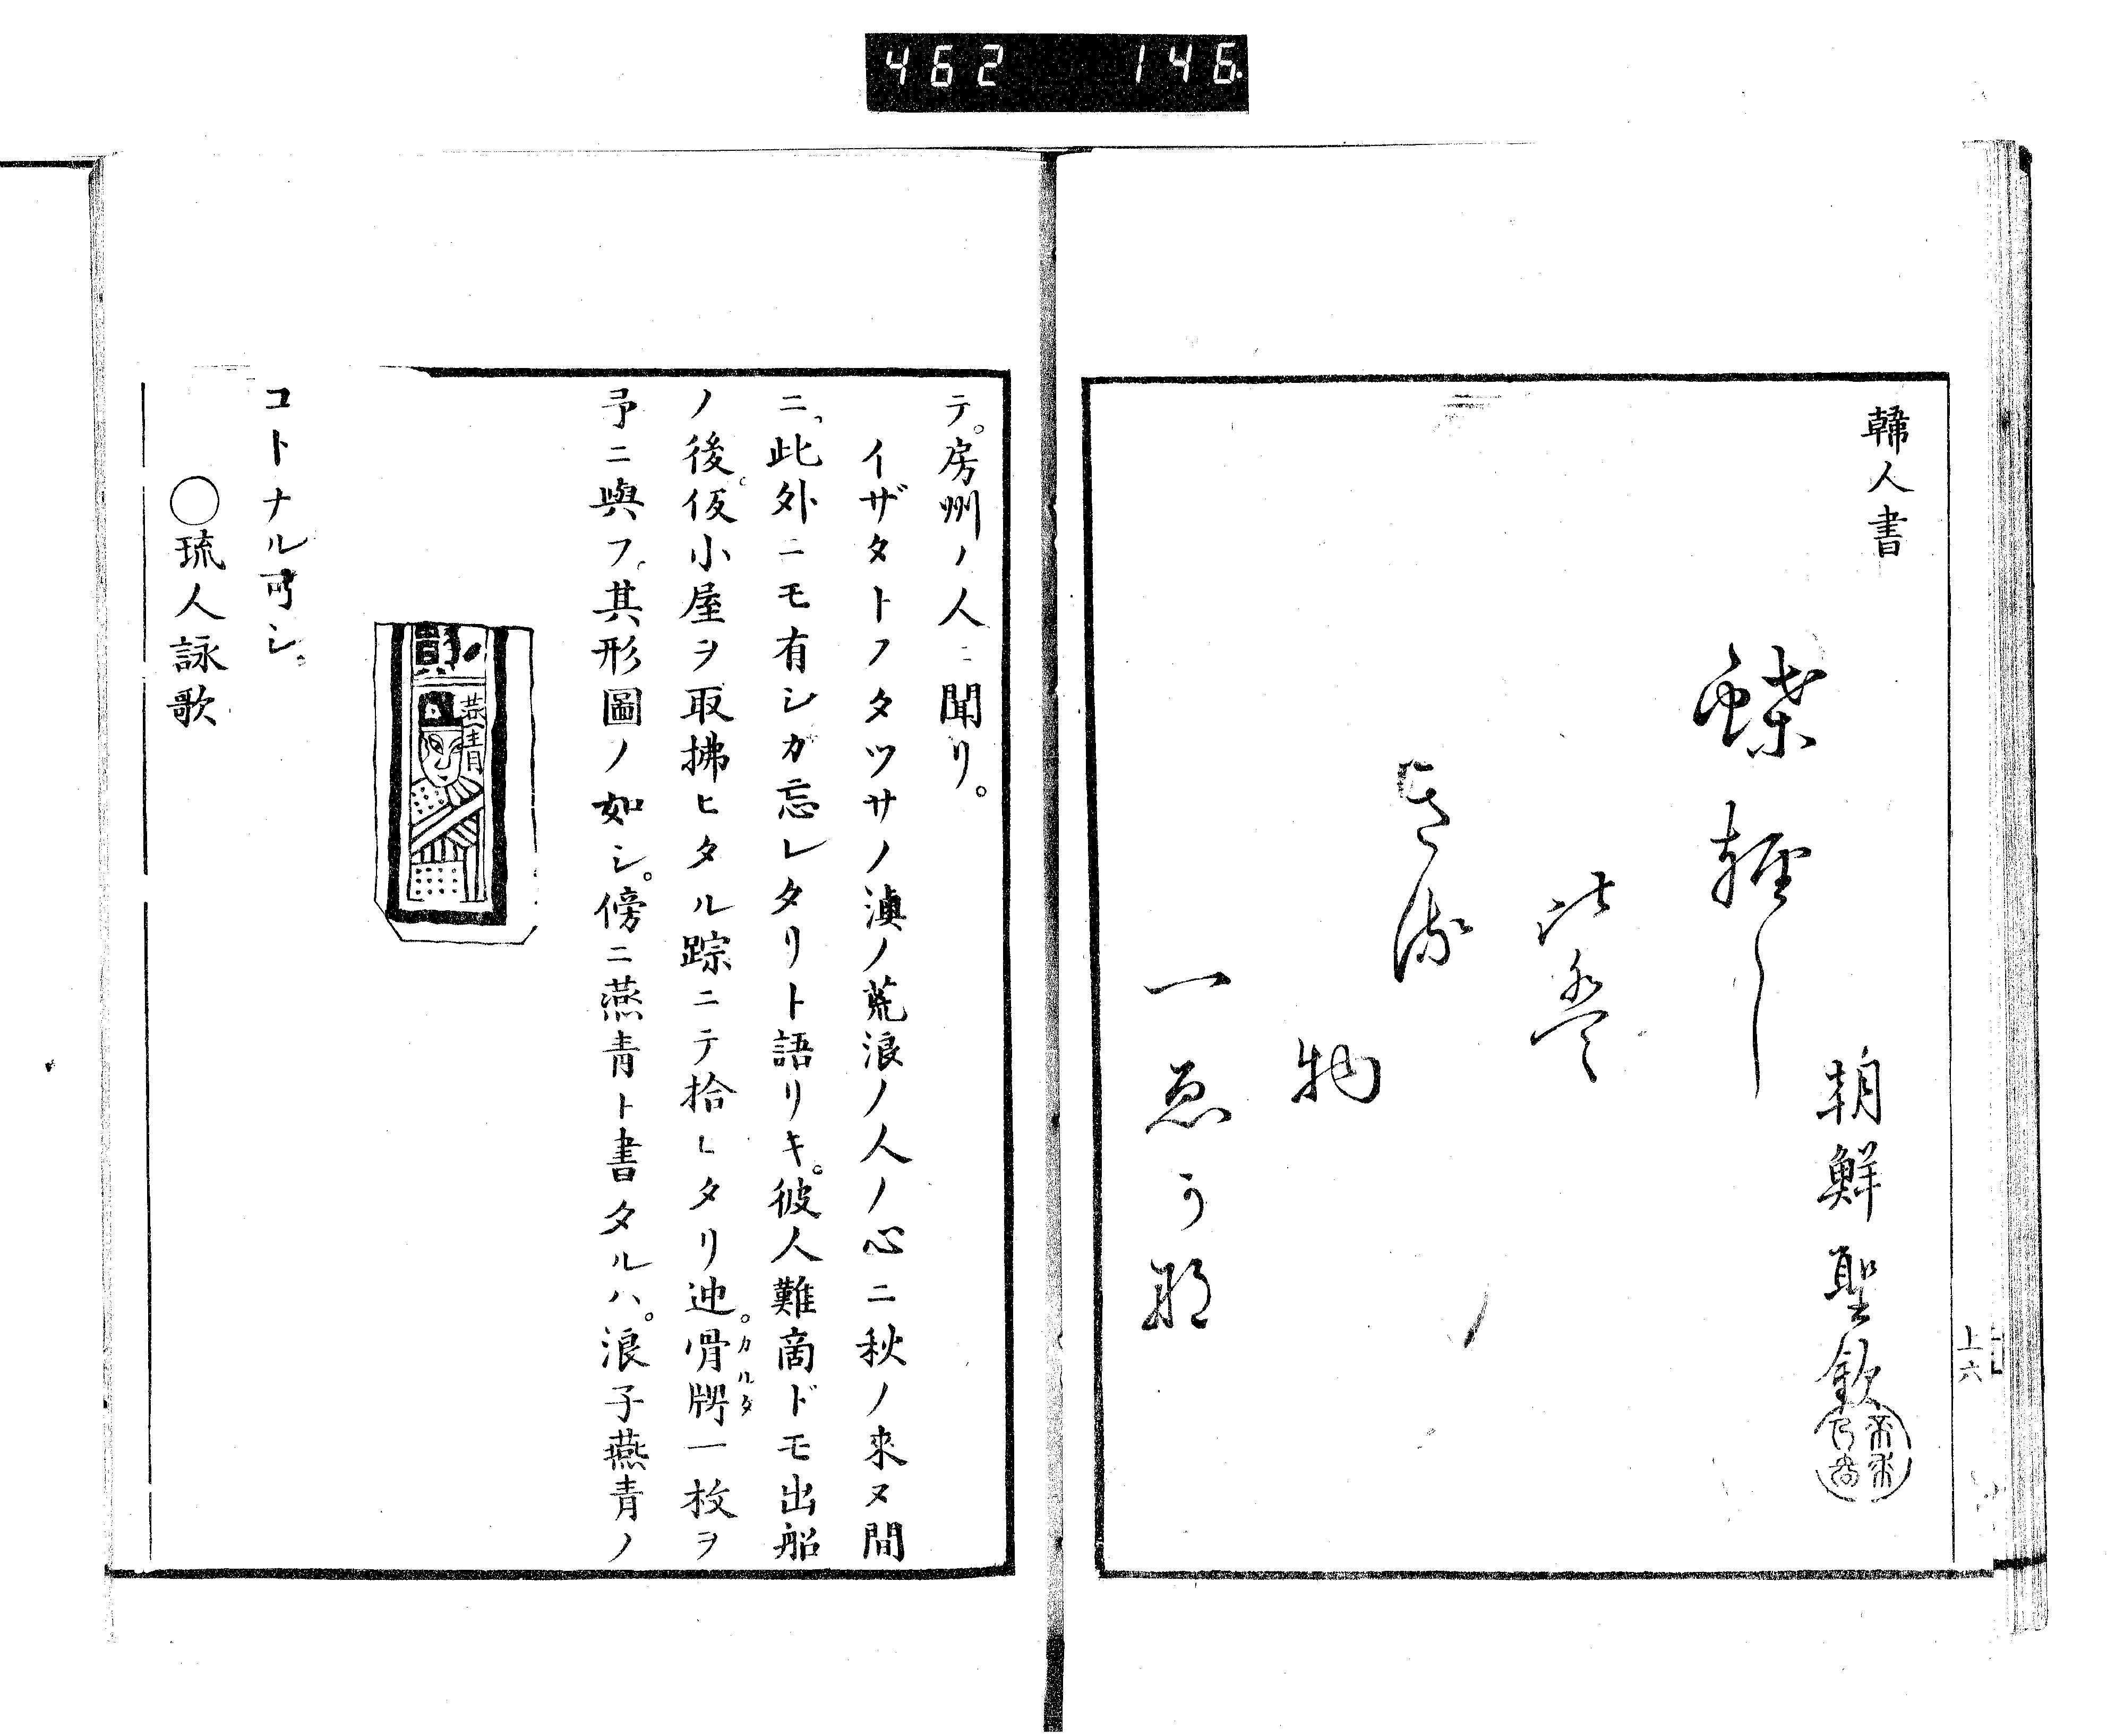 462 146
韓人書
蝶軽し
朝鮮聖欽
物
一
上六
テ。房州ノ人ニ聞リ。
イザタトフタツサノ濱ノ荒浪ノ人ノ心ニ秋ノ来ヌ間
ニ、此外ニモ有シカ忘レタリト語リキ。彼人難商ドモ出船
ノ後。仮小屋ヲ取拂ヒタル踪ニテ拾ヒタリ迚。骨牌一枚ヲ
カルタ
予ニ與フ。其形圖ノ如シ。傍ニ燕青ト書タルハ。浪子燕青ノ
燕青
コトナル可シ。
○琉人詠歌